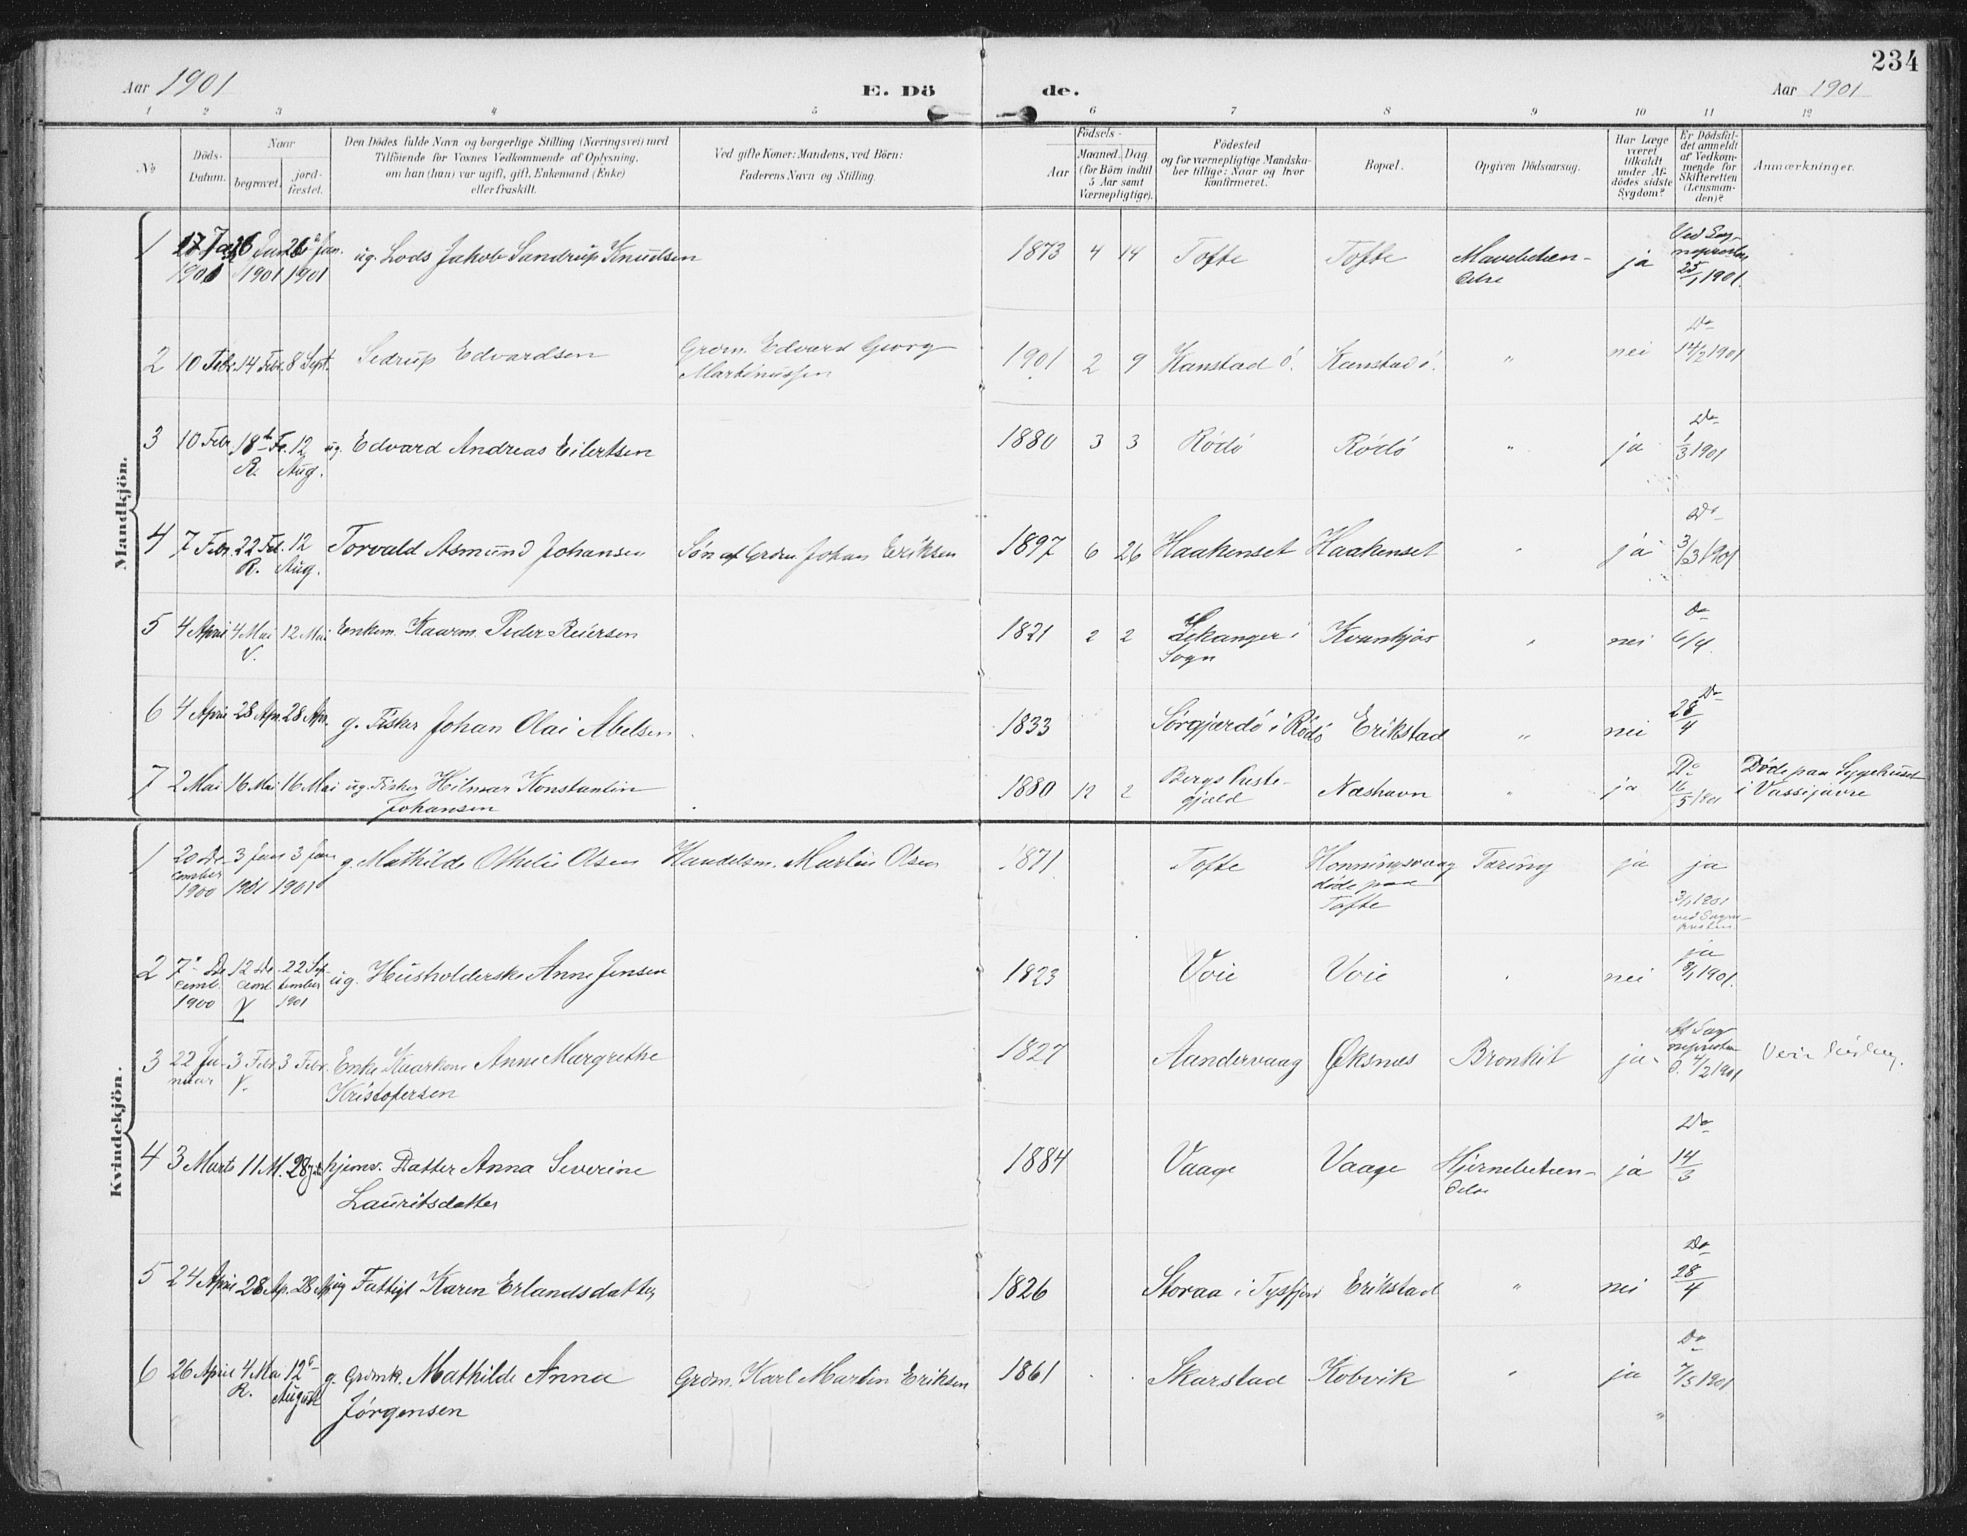 234
Aar 1901
E. Dö
de.
Aar 1901
1 2 3 4 5 6 7 8 9 10 11 12
No
Döds-
Datum.
Naar
begravet.
jord-
fæstet.
Den Dödes fulde Navn og borgerlige Stilling (Næringsvei) med
Tilföiende for Voxnes Vedkommende af Oplysning,
om han (hun) var ugift, gift, Enkemand (Enke)
eller fraskilt.
Ved gifte Koner: Mandens, ved Börn:
Faderens Navn og Stilling.
Födsels-
Aar
Maaned. Dag
(for Börn indtil
5 Aar samt
Værnepligtige).
Födested
og for værnepligtige Mandska-
ber tillige: Naar og hvor
konfirmeret.
Bopæl.
Opgiven Dödsaarsag.
Har Læge
været
tilkaldt
under Af-
dödes sidste
Sygdom?
Er Dödsfal-
det anmeldt
af Vedkom-
mende for
Skifteretten
(Lensman-
den)?
Anmærkninger.
Mandkjön.
1 17 Jan 26 Jan 26 Jan. ug. Lods Jakob Sandrup Knudsen 1873 4 14 Tofte Tofte Mavebetæn- ja Ved Sog-
1901 1901 1901 delse nepresten
25/1 1901.
2 10 Febr. 14 Febr. 8 Sept. Sedrup Edvardsen Grdm. Edvard Georg 1901 2 9 Kanstad ö. Kanstad ö. " nei Do 14/2 1901
Martinussen
3 10 Febr. 18de Fe. 12 ug. Edvard Andreas Eilertsen 1880 3 3 Rödö Rödö " ja Do 1/3 1901
R. Aug.
4 7 Febr. 22 Feb. 12 Torvald Asmund Johansen Sön af Grdm. Johan Eriksen 1897 6 26 Haakenset Haakenset " ja Do 3/3 1901
R. Aug.
5 4 April 4 Mai 12 Mai Enkem. Kaarm. Peder Reiersen 1821 2 2 Lekanger i Kvankjös " nei Do 6/4.
V. Sogn
6 4 April 28 Apr. 28 Apr. g. Fisker Johan Olai Abelsen 1833 Sörgjærdö i Rödö Erikstad " nei Do 28/4
7 2 Mai 16 Mai 16 Mai ug. Fisker Hilmar Konstantin 1880 12 2 Bergs Præste- Næshavn " ja Do 16/5 1901 Döde paa Sygehuset
Johansen gjæld i Vassijavre
Kvindekjön.
1 20 De- 3 Jan 3 Jan g. Mathilde Othelie Olsen Handelsm. Martin Olsen 1871 Tofte Honningsvaag Tæring ja ja
cember 1901 1901 döde paa 3/1 1901
1900 Tofte ved Sogne
presten
2 7de De 12 De 22 Sep- ug. Husholderske Anne Jensen 1823 Voie Voie " nei ja
cemb. cemb. tember 8/1 1901.
1900 V 1901
3 22 Ja- 3 Febr. 3 Febr. Enke Kaarkone Anne Margrethe 1827 Aandervaag Öksnæs Bronkit ja
nuar V. Kristofersen 4/2 1901
4 3 Marts 11 M. 28 hjemv. Datter Anna Severine 1884 Vaage Vaage Hjernebetæn- ja Do 14/3
Lauritsdatter delse
5 24 April 28 Ap. 28 Ap. ug Fattigl. Karen Erlandsdatter 1826 Storaa i Tysfjord Erikstad " nei Do 28/4
6 26 April 4 Mai 12te g. Grdmk. Mathilde Anna Grdm. Karl Martin Eriksen 1861 Skarstad Kobvik " ja Do 7/5 1901
R. August Jörgensen